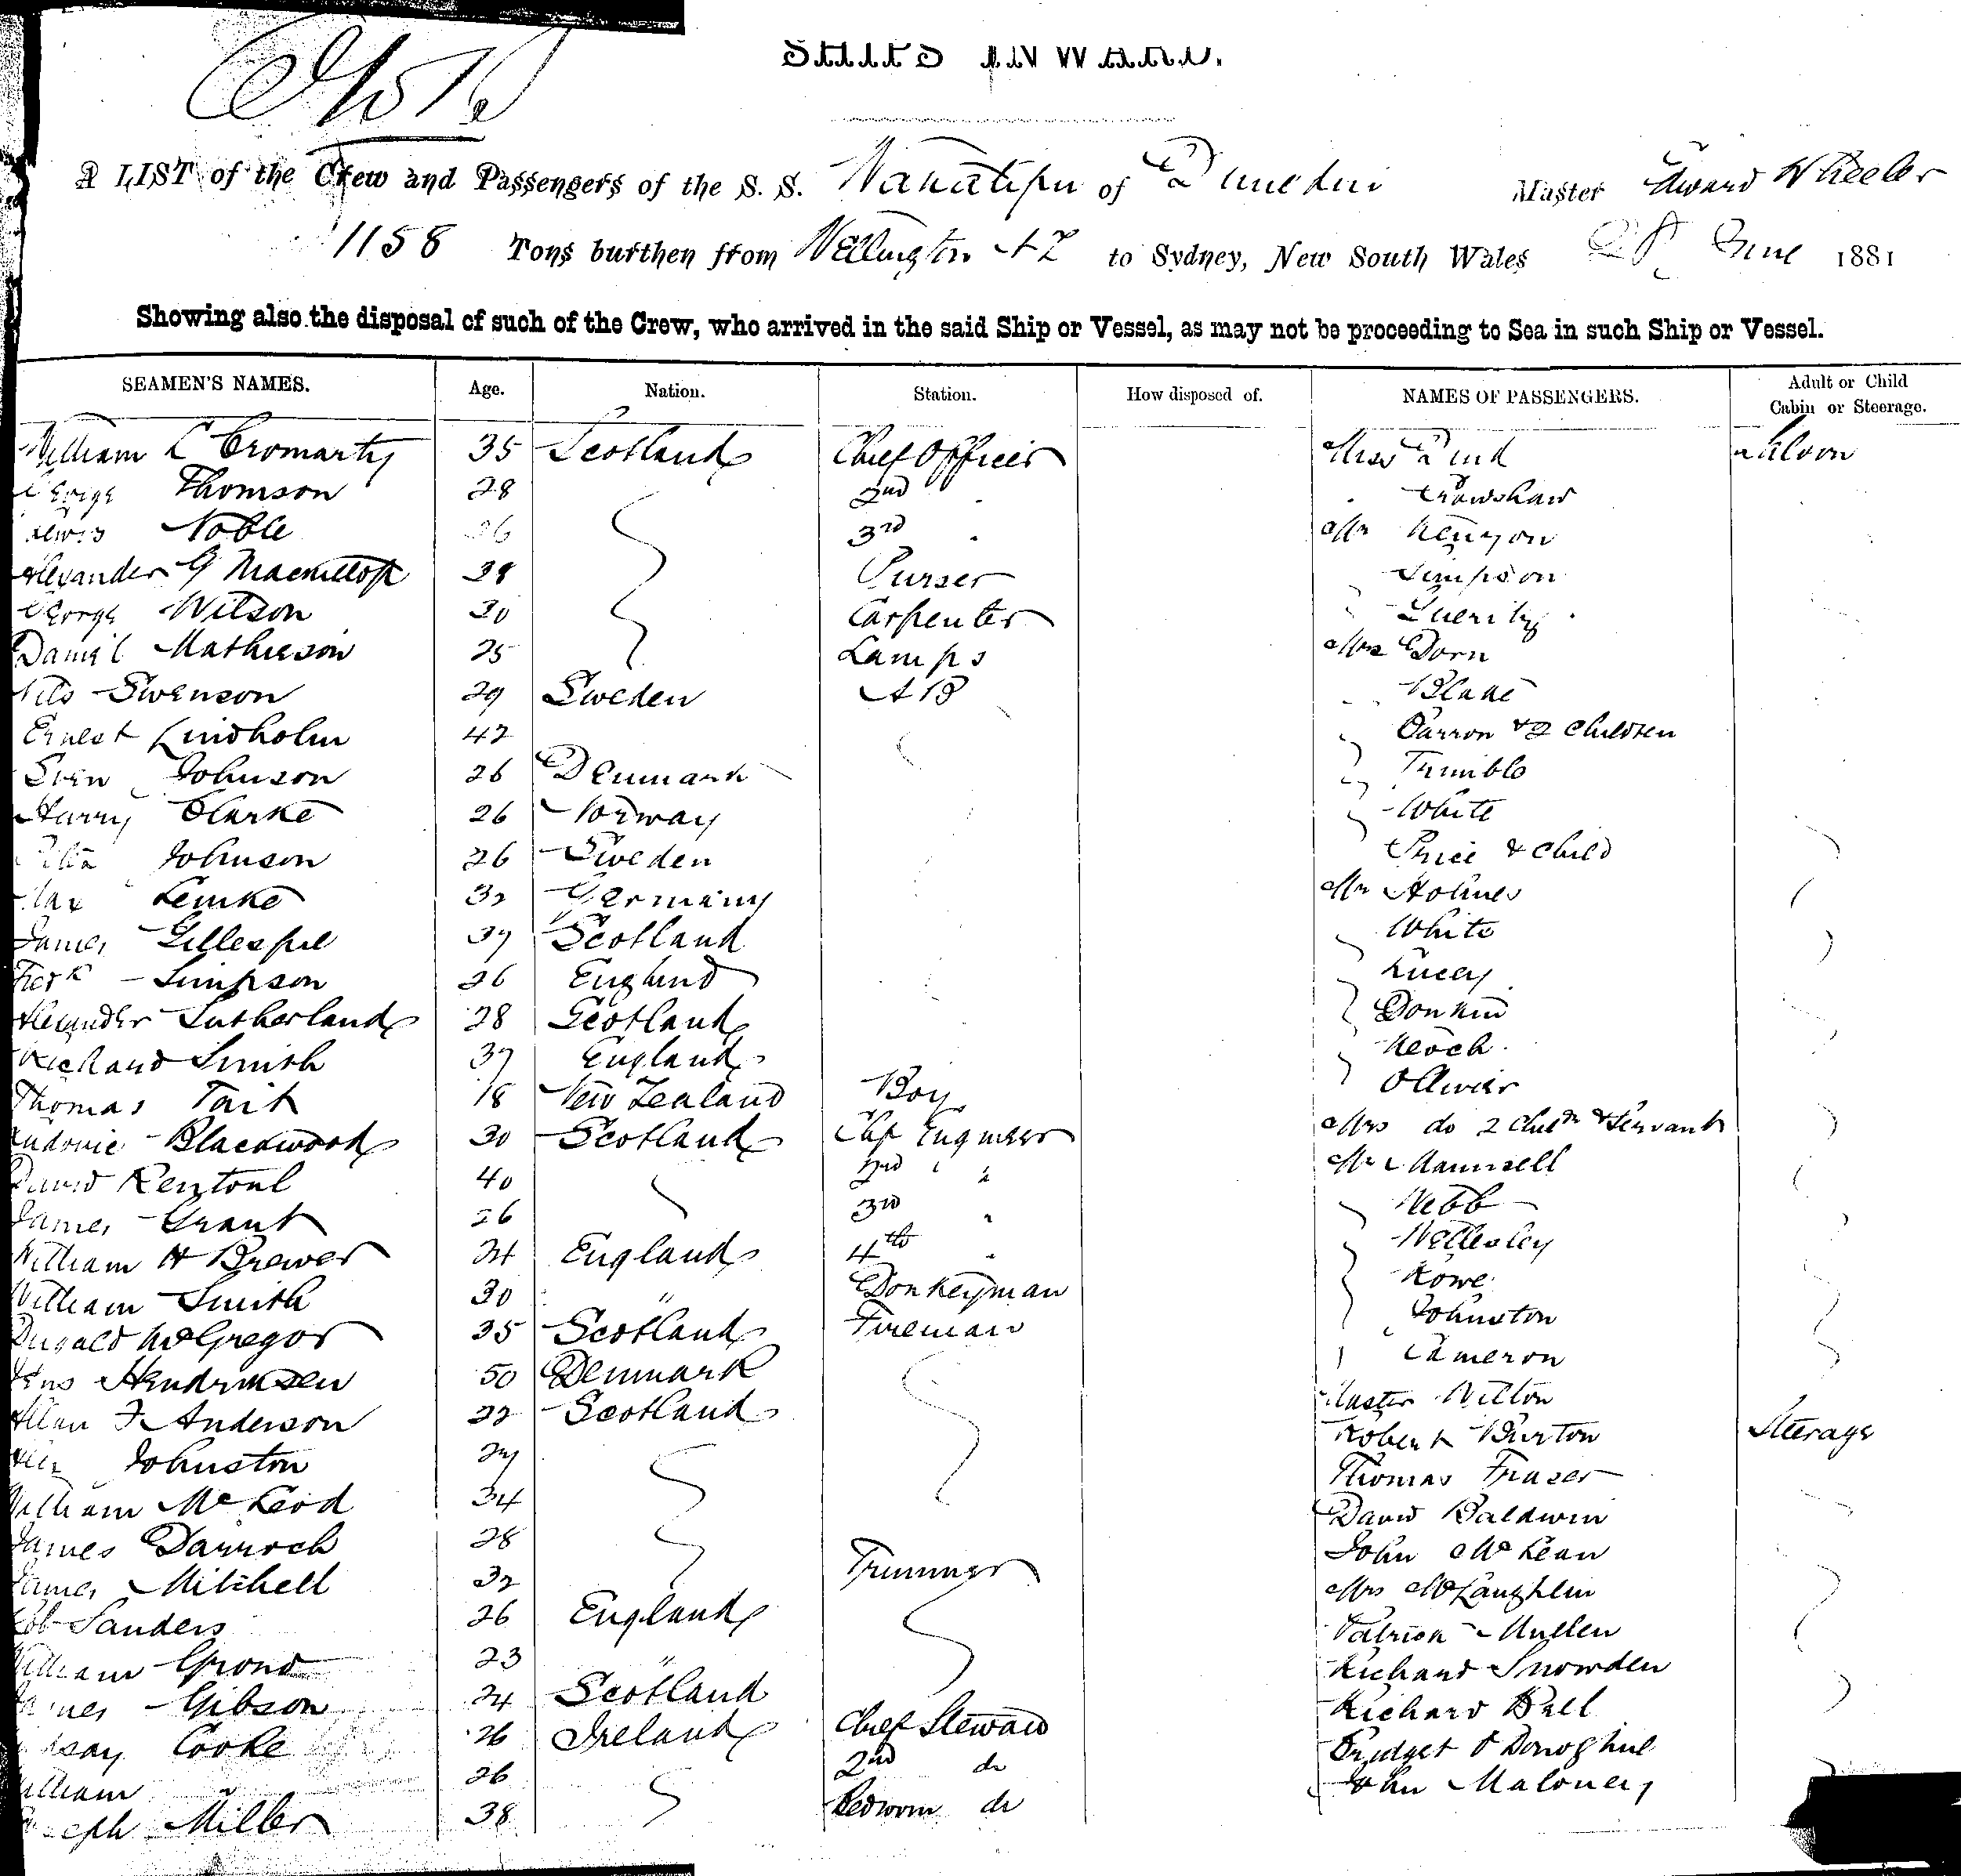 SHIPS INWARD.
A LIST of the Crew and Passengers of the S. S. Wakatipu of Dunedin Master Edward Wheeler
1158 Tons burthen from Wellington NZ to Sydney, New South Wales June 1881
Showing also the disposal of such of the Crew, who arrived in the said Ship or Vessel, as may not be proceeding to Sea in such Ship or Vessel.
SEAMEN'S NAMES. Age. Nation. Station. How disposed of. NAMES OF PASSENGERS. Adult or Child Cabin or Steerage.
William L Cromarty 35 Scotland Chief Officer Miss Saloon
George Thomson 28 2nd " Crawshaw
Noble 26 3rd " Mr Kenyon
Alexander G Mackillop 38 Purser Simpson
George Wilson 30 Carpenter
Daniel Mathieson 25 Lamps Mrs Dorn
Nils Swenson 29 Sweden AB Blake
Ernest Lindholm 42 Carron & 2 Children
Sven Johnson 26 Denmark Trimble
Harry Clarke 26 Norway White
Johnson 26 Sweden Price & Child
Max Lemke 32 Germany Mr Holmes
James Gillespie 37 Scotland White
Fredk Simpson 26 England Lucey
Alexander Sutherland 28 Scotland Donkin
Richard Smith 37 England Keoch
Thomas Tait 18 New Zealand Boy Ollivier
Ludovic Blackwood 30 Scotland Chf Engineer Mrs do 2 Childn & Servant
David Rentoul 40 2nd " " Mr Maunsell
James Grant 26 3rd " Webb
William H Brewer 24 England 4th " Wellesley
William Smith 30 " Donkeyman Rowe
Dugald McGregor 35 Scotland Fireman Johnston
Jens Hendricksen 50 Denmark Cameron
Allan F Anderson 22 Scotland Master Wilton
Johnston 24 Robert Burton Steerage
William McLeod 34 Thomas Fraser
James Darroch 28 David Baldwin
James Mitchell 32 Trimmer John McLean
Rob Sanders 26 England Mrs McLaughlin
William Grono 23 " Patrick Mullen
James Gibson 24 Scotland Richard Snowden
Lindsay Cooke 26 Ireland Chief Steward Richard Bell
William 26 2nd do Bridget O Donoghue
Joseph Miller 38 Bedroom do John Maloney